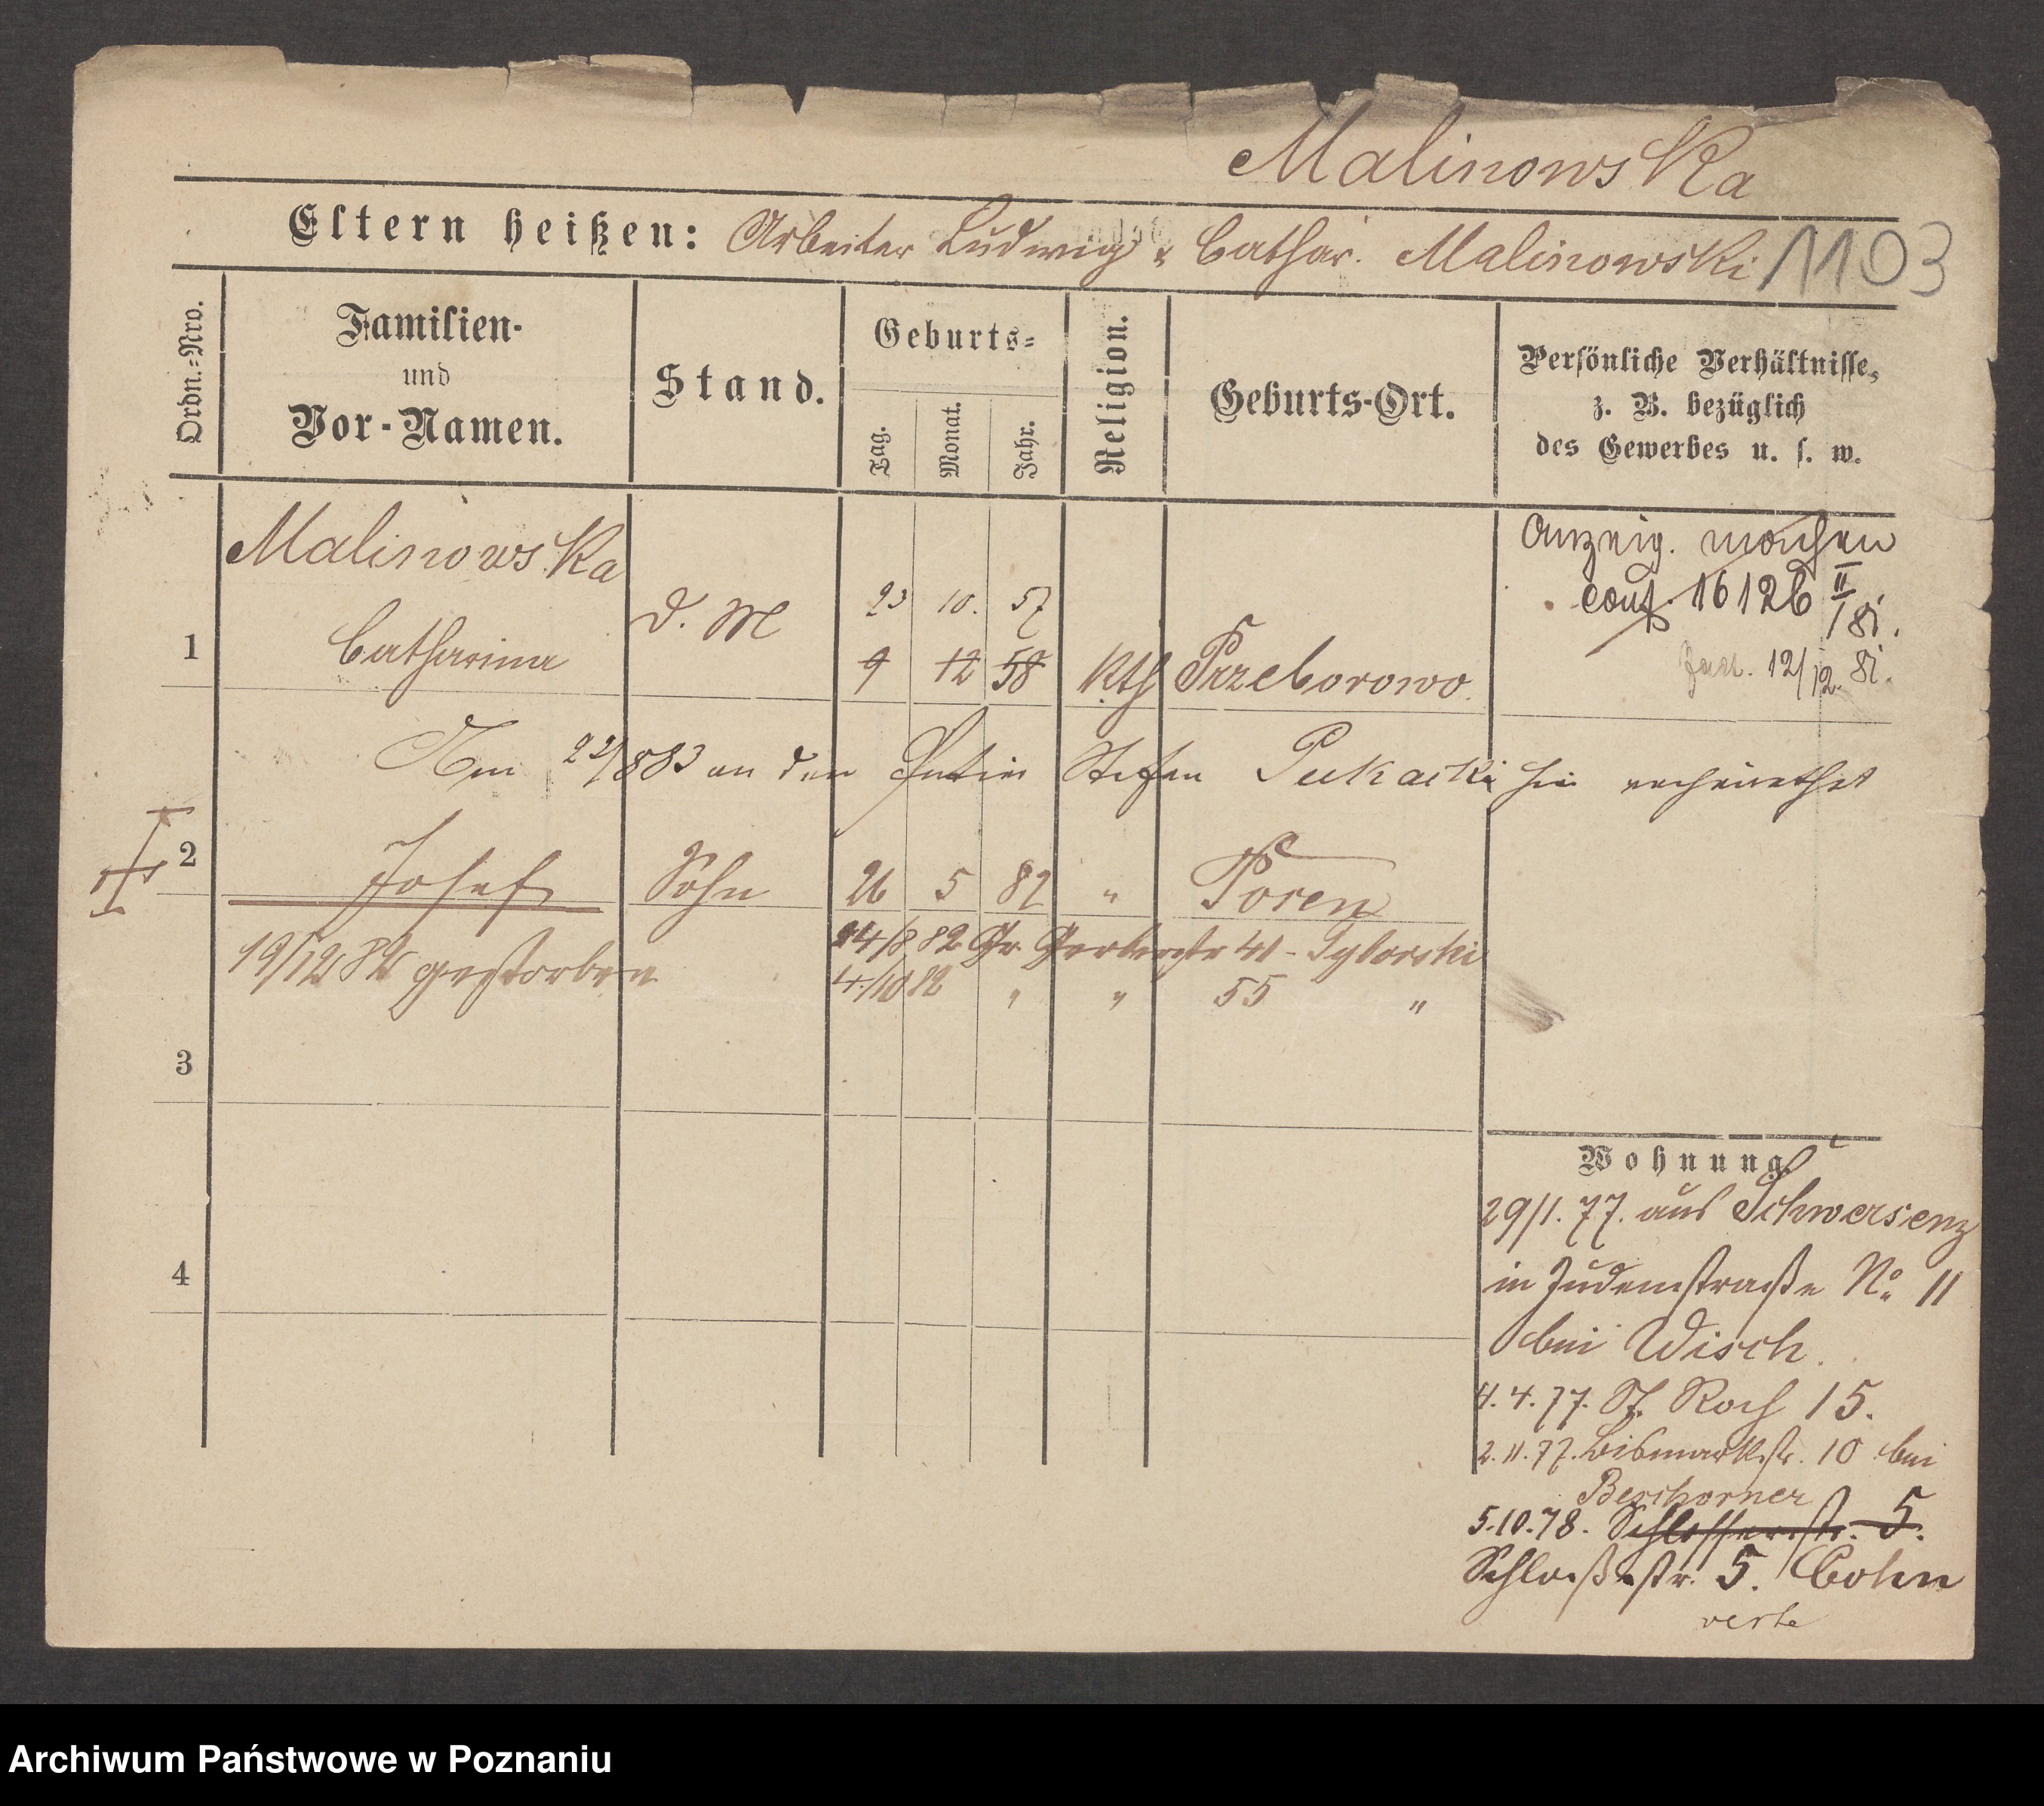 Malinowska
Eltern heißen: Arbeiter Ludwig & Cathar. Malinowski 1103
Ordn.-Nro.
Familien- und Vor-Namen.
Stand.
Geburts-
Tag. Monat. Jahr.
Religion.
Geburts-Ort.
Persönliche Verhältnisse,
z. B. bezüglich
des Gewerbes u. s. w.
Malinowska
Anzeig. machen
conf. 16126 II/81.
23 10. 57
1 Catharina d. M 9 12 58 Kth Przeborowo
12/12. 81.
Am 22/883 an den Stefan Pukacki hie verheirathet
2 Josef Sohn 26 5 82 " Posen
19/12 82 gestorben
24/8 82 Gr. Gerberstr 41 - Sylorski
4/10 82 " " 55 "
3
4
Wohnung.
29/1. 77. aus Schwersenz
in Judenstraße No. 11
bei Wisch.
4. 4. 77. St. Roch 15.
2. 11. 77. Bismarkstr. 10 bei
Beschorner
5.10.78. Schlosserstr. 5.
Schloßstr. 5. Cohn
verte
Archiwum Państwowe w Poznaniu